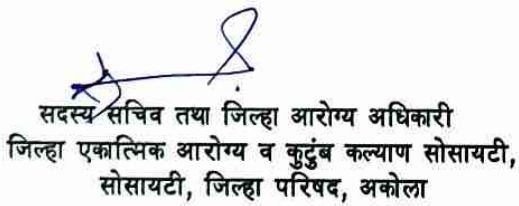 सदस्य सचिव तथा जिल्हा आरोग्य अधिकारी
जिल्हा एकात्मिक आरोग्य व कुटुंब कल्याण सोसायटी,
सोसायटी, जिल्हा परिषद, अकोला